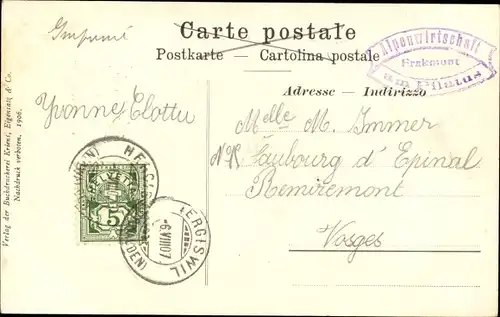 Carte postale
Postkarte — Cartolina postale
Adresse — Indirizzo
Imprimé
Alpenwirtschaft
Frakmont
am Pilatus
Yvonne Clottu
Melle M. Immer
Faubourg d'Epinal
Remiremont
Vosges
HELVETIA
5
HERGISWIL
HERGISWIL
-6.VIII.07
Verlag der Buchdruckerei Kriens, Eigenatz & Co.
Nachdruck verboten. 1906.